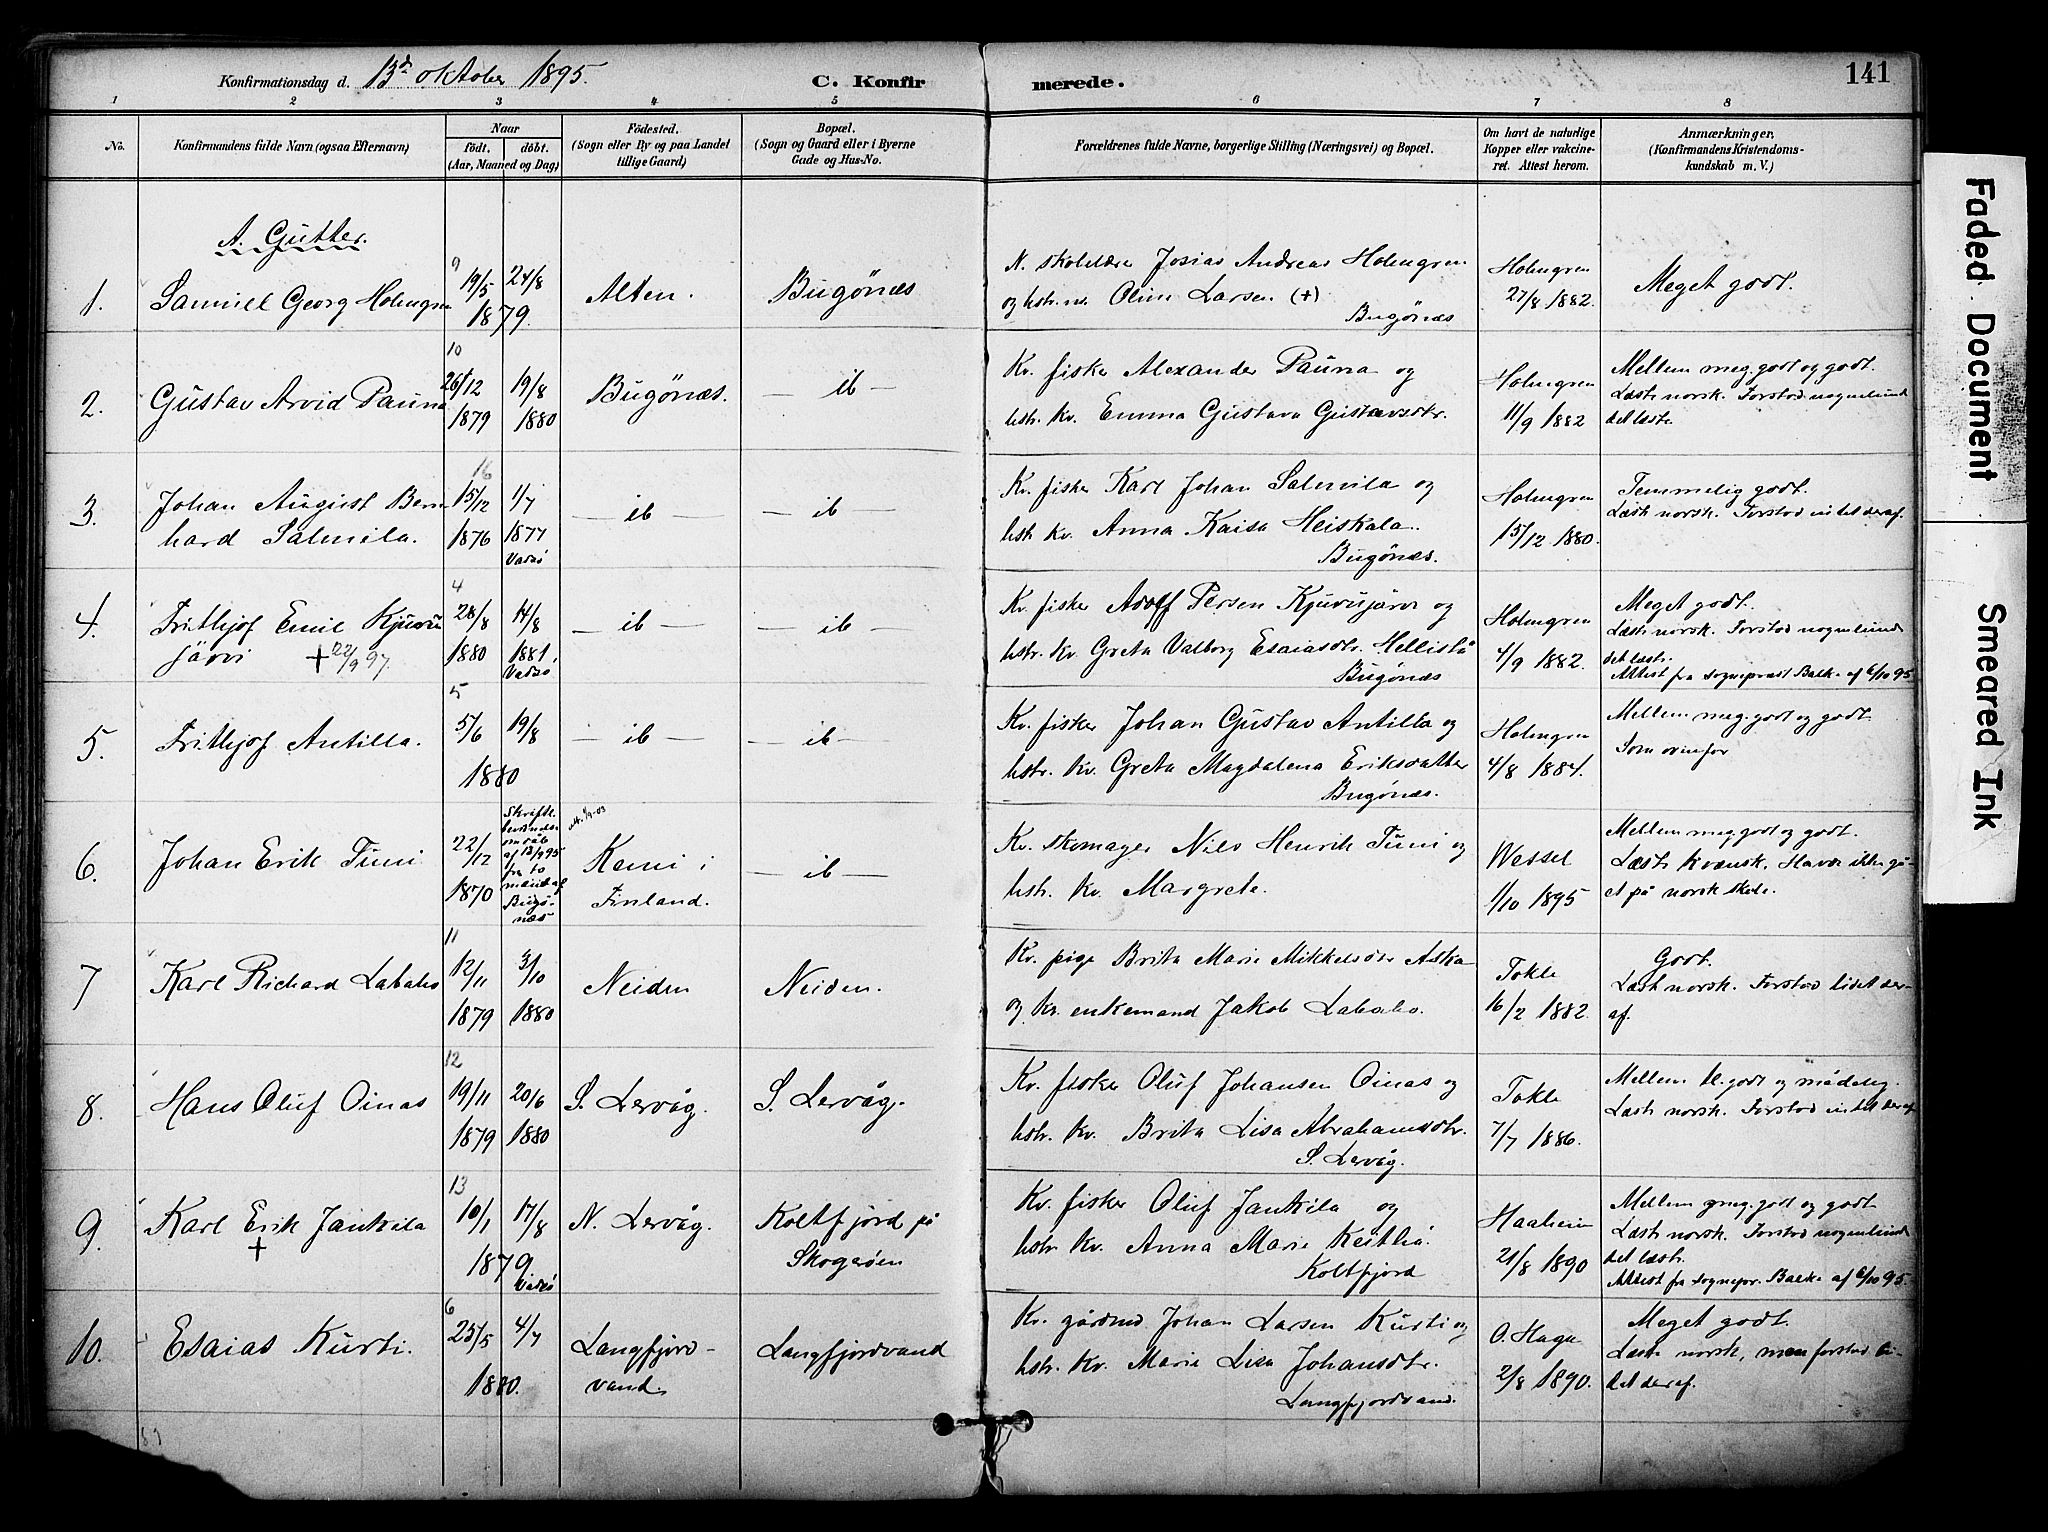 Konfirmationsdag d. 13d oktober 1895.
C. Konfirmerede.
141
1 2 3 4 5 6 7 8
No.
Konfirmandens fulde Navn (ogsaa Efternavn)
Naar
födt. döbt.
(Aar, Maaned og Dag)
Födested.
(Sogn eller By og paa Landet
tillige Gaard)
Bopæl.
(Sogn og Gaard eller i Byerne
Gade og Hus-No.
Forældrenes fulde Navne, borgerlige Stilling (Næringsvei) og Bopæl.
Om havt de naturlige
Kopper eller vakcine-
ret. Attest herom.
Anmærkninger.
(Konfirmandens Kristendoms-
kundskab m. V.)
A. Gutter.
1.
Samuel Georg Holmgren
9
19/5 24/8
1879.
Alten.
Bugönæs
N. skolelærer Josias Andreas Holmgren
og hstr. n. Oline Larsen (+)
Bugönæs
Holmgren
27/8 1882.
Meget godt.
2.
Gustav Arvid Pauna
10
26/12 19/8
1879 1880
Bugönæs.
— ib —
Kv. fisker Alexander Pauna og
hstr. kv. Emma Gustava Gustavsdtr.
Holmgren
11/9 1882
Mellem meg. godt og godt.
Læste norsk. Forstod nogenlunde
det læste.
3.
Johan August Bern
hard Salmila.
16
15/12 1/7
1876 1877
Vadsö
— ib —
— ib —
Kv. fisker Karl Johan Salmila og
hstr kv. Anna Kaisa Heiskala.
Bugönæs.
Holmgren
15/12 1880.
Temmelig godt.
Læste norsk. Forstod intet deraf.
4.
Frithjof Emil Kjuru
järvi + 22/9 97.
4
28/8 14/8
1880 1881
Vadsö
— ib —
— ib —
Kv. fisker Adolf Persen Kjurujärvi og
hstr. kv. Greta Valborg Esaiasdtr. Hellistä
Bugönæs
Holmgren
4/9 1882.
Meget godt.
Læste norsk. Forstod nogenlunde
det læste.
Attest fra sognepræst Balke af 6/10 95
5.
Frithjof Antilla.
5
5/6 19/8
1880
— ib —
— ib —
Kv. fisker Johan Gustav Antilla og
hstr. kv. Greta Magdalena Eriksdatter
Bugönæs.
Holmgren
4/8 1884.
Mellem meg. godt og godt
Som ovenfor
6.
Johan Erik Tuni
22/12
1870
Skriftl.
af 13/9 95
fra to
mænd af
Bugö-
næs
Kemi i
Finland.
— ib —
Kv. skomager Nils Henrik Tuni og
hstr. kv. Margrete.
Wessel
1/10 1895
Mellem meg. godt og godt.
Læste kvænsk. Havde ikke gå-
et på norsk skole.
7
Karl Richard Labaho
11
12/11 3/10
1879 1880
Neiden
Neiden.
Kv. pige Brita Marie Mikkelsdtr Aska
og kv. enkemand Jakob Labaho.
Tokle
16/2 1882.
Godt.
Læste norsk. Forstod lidet der-
af.
8.
Hans Oluf Oinas
12
19/11 20/6
1879 1880
S. Lervåg.
S. Lervåg.
Kv. fisker Oluf Johansen Oinas og
hstr. kv. Brita Lisa Abrahamsdtr.
S. Lervåg.
Tokle
7/7 1886.
Mellem tl. godt og mådelig.
Læste norsk. Forstod intet deraf
9.
Karl Erik Jankila
+
13
10/1 17/8
1879
Vadsö
N. Lervåg.
Koltfjord på
Skogeröen
Kv. fisker Oluf Jankila og
hstr. kv. Anna Marie Keitha.
Koltfjord
Haaheim
21/8 1890
Mellem meg. godt og godt
Læste norsk. Forstod nogenlunde
det læste.
Attest fra sognepr. Balke af 6/10 95.
10.
Esaias Kurti.
6
25/5 4/7
1880.
Langfjord-
vand.
Langfjordvand
Kv. gårdmd Johan Larsen Kurti og
hstr. kv. Marie Lisa Johansdtr.
Langfjordvand.
O. Haga
2/8 1890.
Meget godt.
Læste norsk, men forstod li-
det deraf.
Faded Document
Smeared Ink